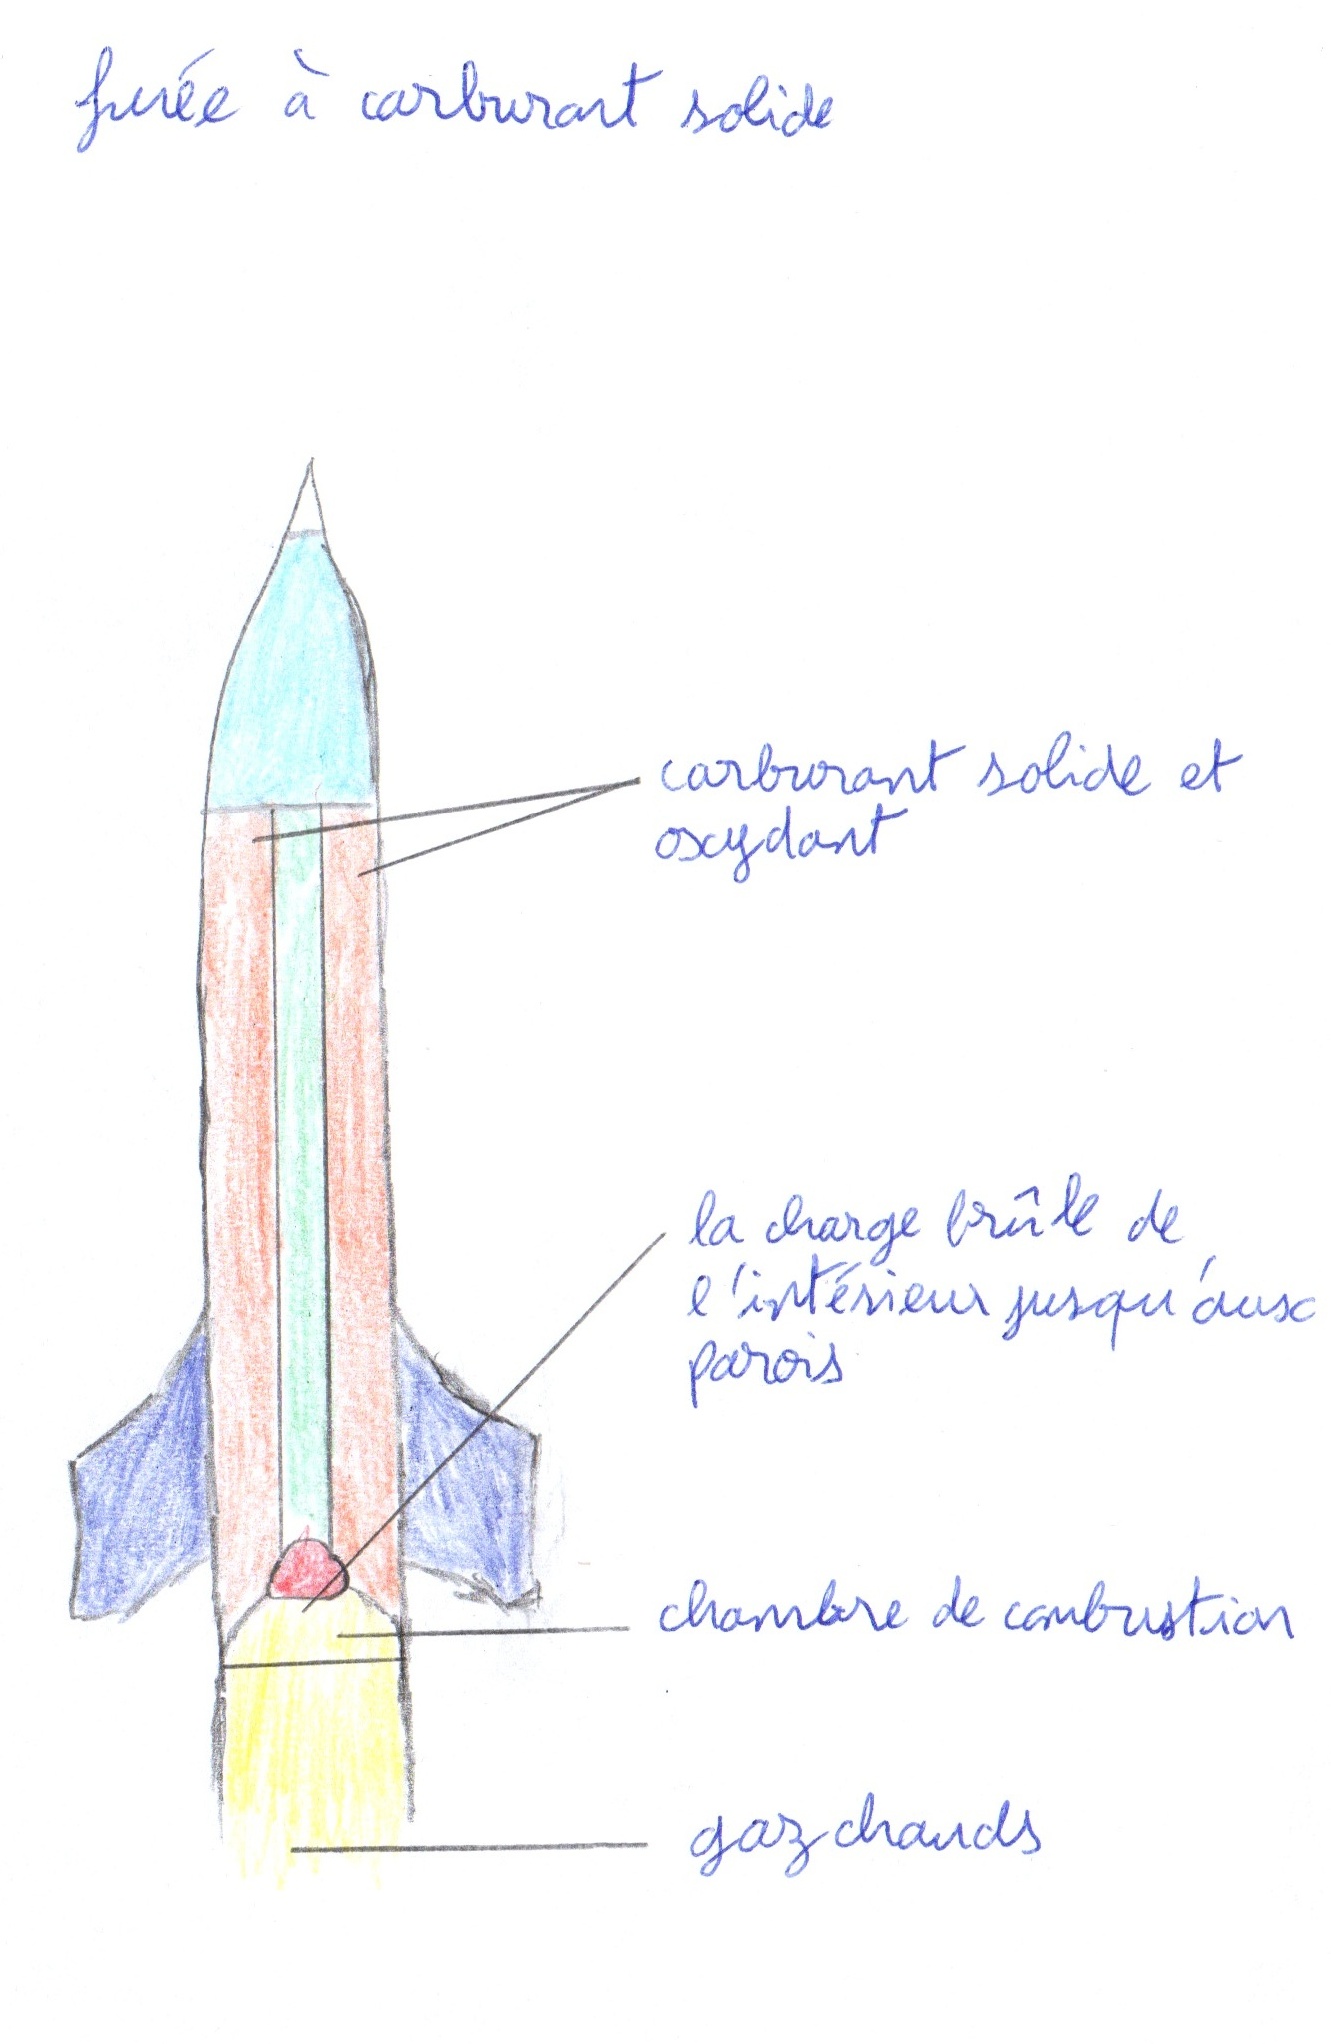 fusée à carburant solide
carburant solide et
oxydant
la charge brûle de
l'intérieur jusqu'aux
parois
chambre de combustion
gaz chauds